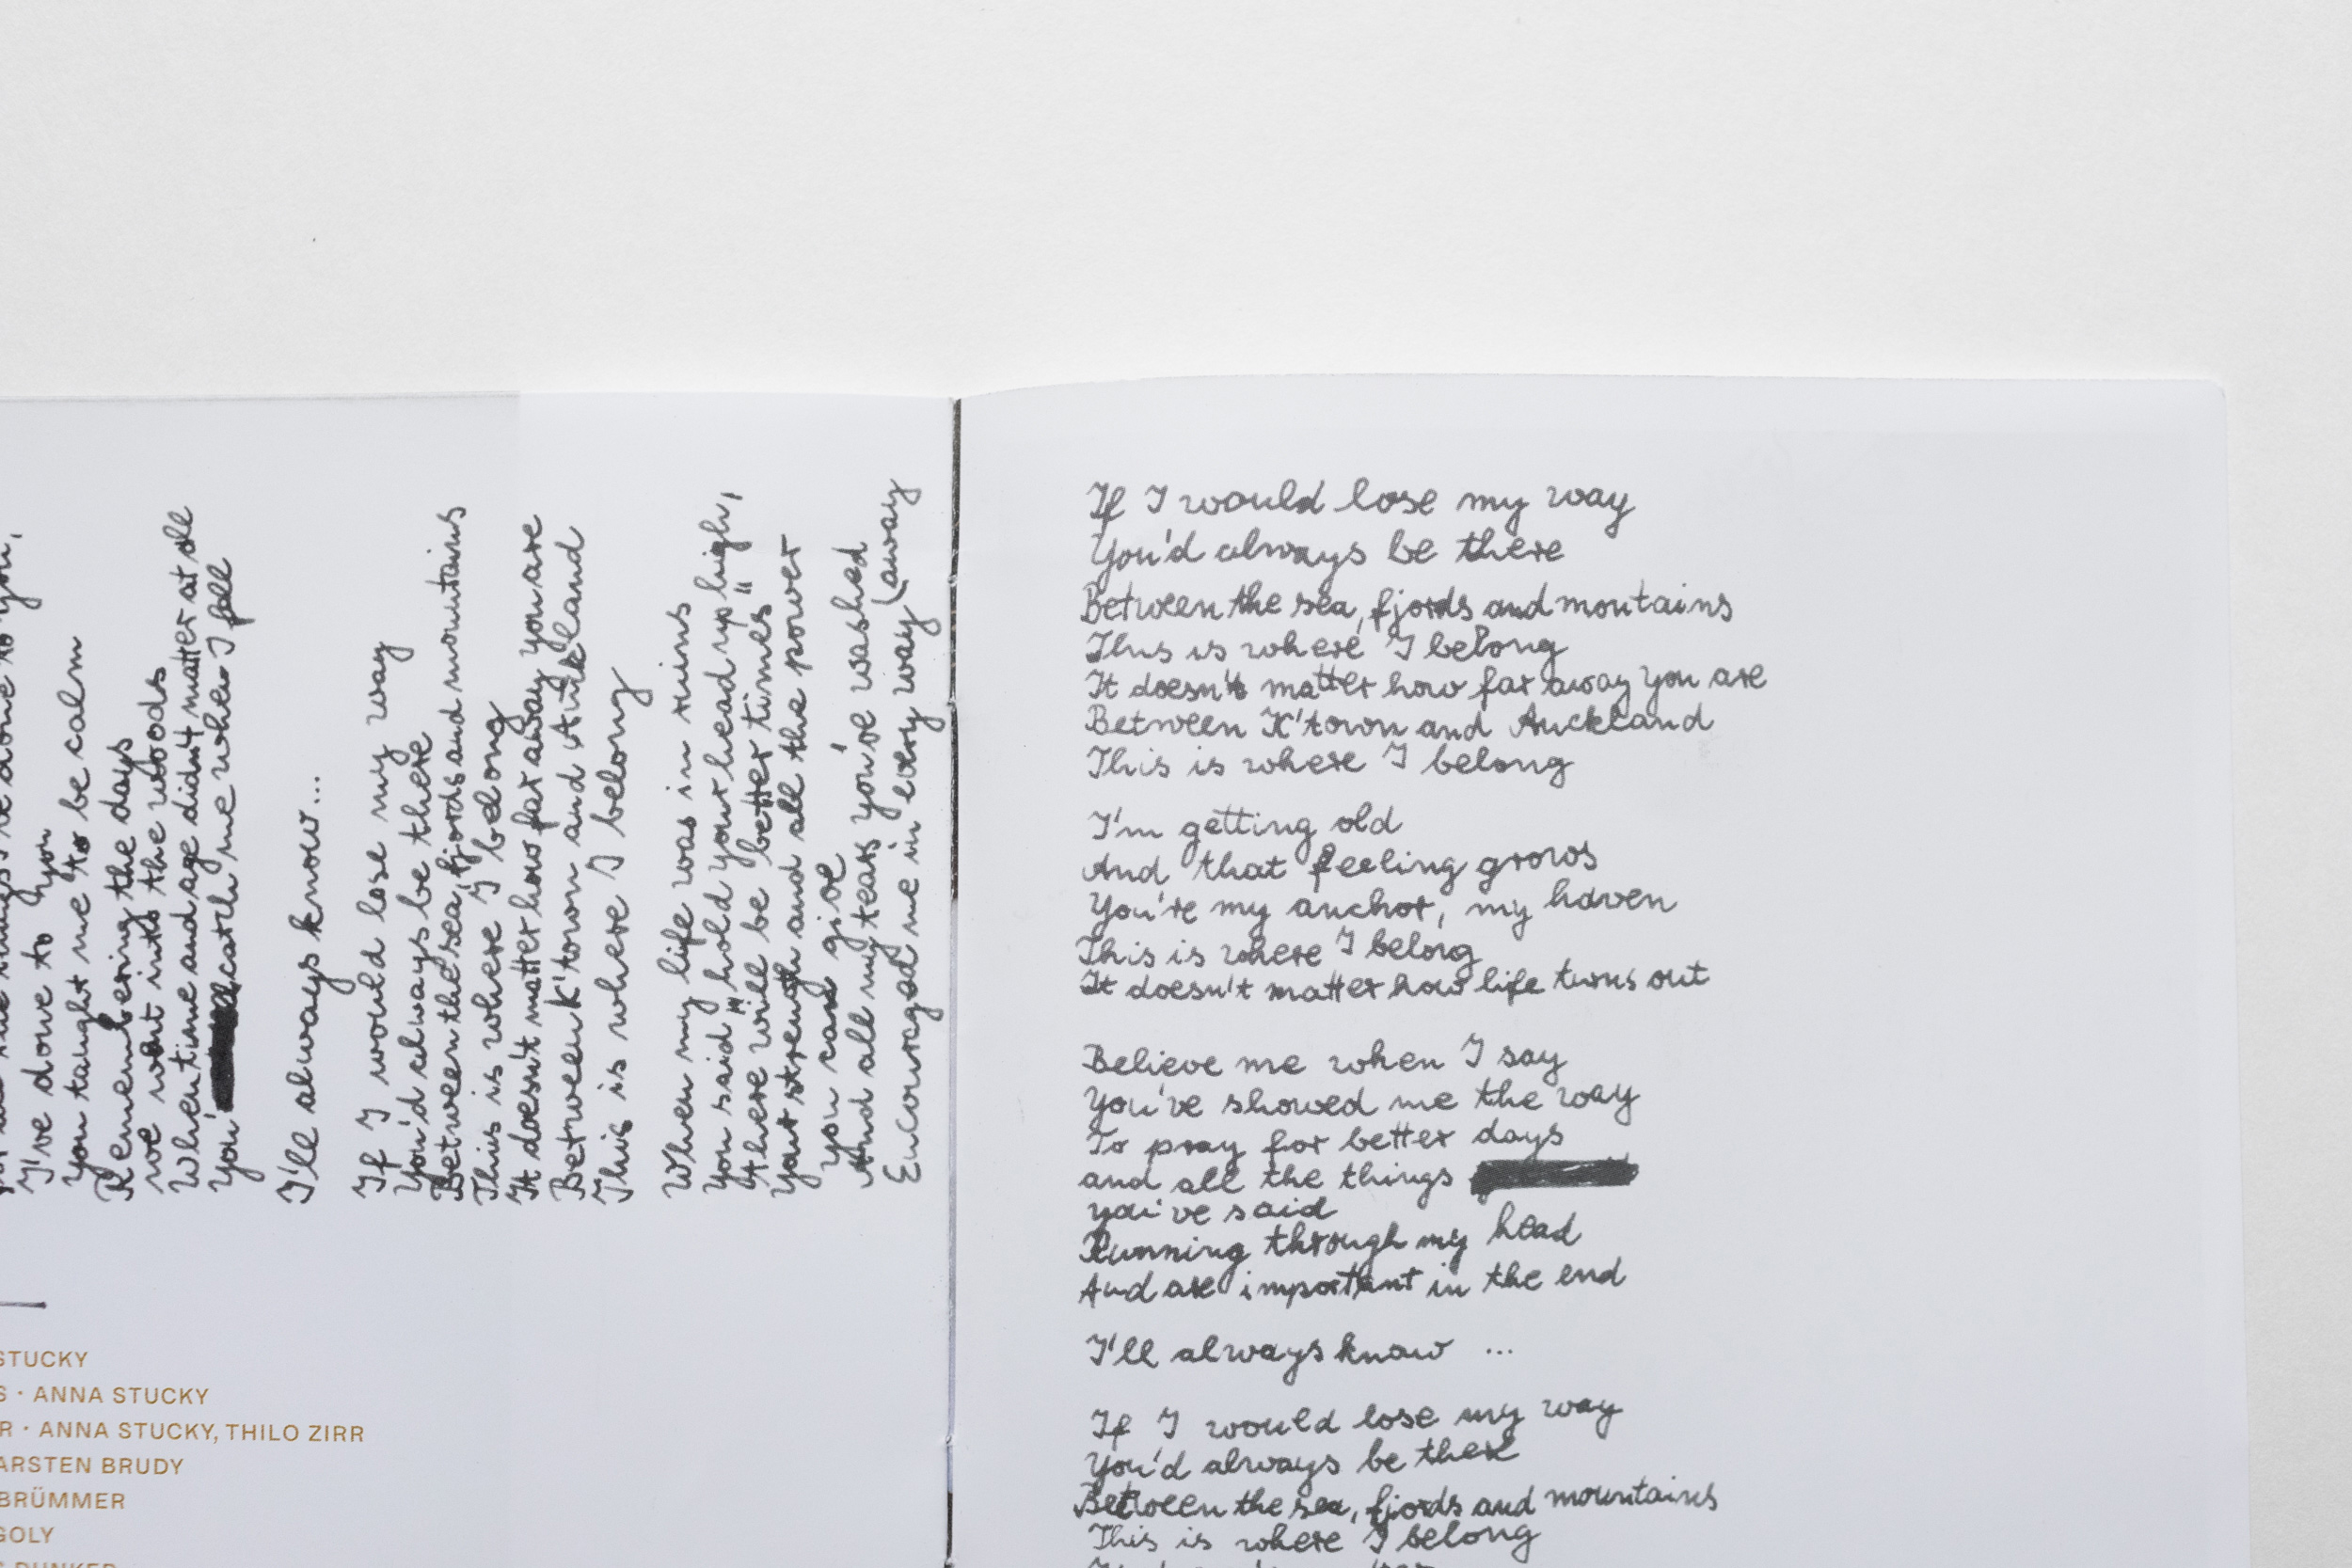 I've done to you
You taught me to be calm
Remembering the days
we went into the woods
When time and age didn't matter at all
You catch me when I fall
I'll always know...
If I would lose my way
You'd always be there
Between the sea, fjords and mountains
This is where I belong
It doesn't matter how far away you are
Between K'town and Auckland
This is where I belong
When my life was in ruins
You said "hold your head up high,
there will be better times"
Your strength and all the power
you can give
And all my tears you've washed
(away
Encouraged me in every way
STUCKY
S · ANNA STUCKY
R · ANNA STUCKY, THILO ZIRR
ARSTEN BRUDY
BRÜMMER
GOLY
If I would lose my way
You'd always be there
Between the sea, fjords and moutains
This is where I belong
It doesn't matter how far away you are
Between K'town and Auckland
This is where I belong
I'm getting old
And that feeling grows
You're my anchor, my haven
This is where I belong
It doesn't matter how life turns out
Believe me when I say
You've showed me the way
To pray for better days
and all the things
you've said
Running through my head
And are important in the end
I'll always know ...
If I would lose my way
You'd always be there
Between the sea, fjords and mountains
This is where I belong